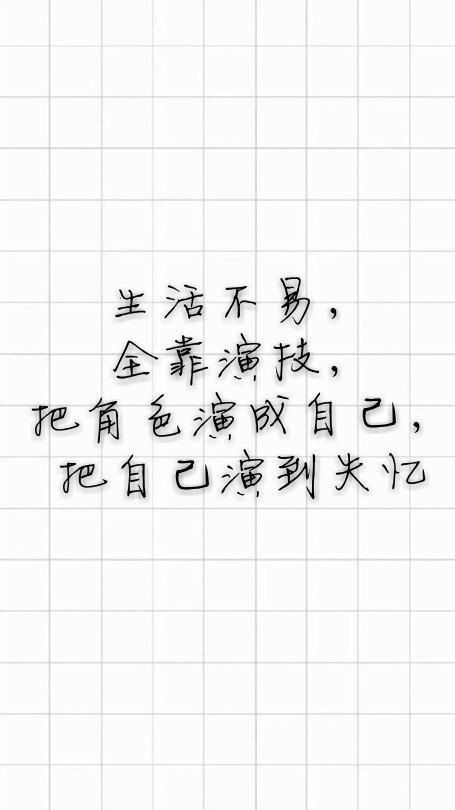 生活不易，
全靠演技，
把角色演成自己，
把自己演到失忆